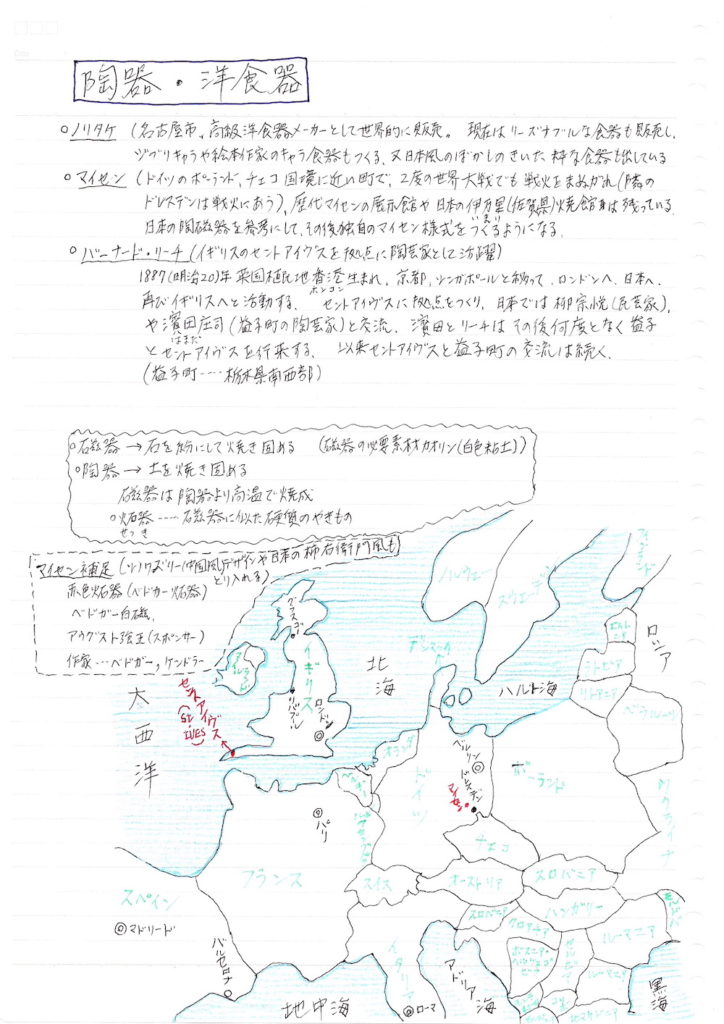 陶器・洋食器
○ノリタケ (名古屋市。高級洋食器メーカーとして世界的に販売。 現在はリーズナブルな食器も販売し、
ジブリキャラや絵本作家のキャラ食器もつくる。又日本風のぼかしのきいた粋な食器も出している
○マイセン (ドイツのポーランド、チェコ国境に近い町で、2度の世界大戦でも戦火をまぬがれ(隣の
ドレスデンは戦火にあう)、歴代マイセンの展示館や日本の伊万里(佐賀県)焼館等は残っている。
いまり
日本の陶磁器を参考にして、その後独自のマイセン様式をつくるようになる。
○バーナード・リーチ (イギリスのセントアイヴスを拠点に陶芸家として活躍)
1887(明治20)年英国植民地香港生まれ。京都、シンガポールと移って、ロンドンへ、日本へ、
ホンコン
再びイギリスへと活動する。 セントアイヴスに拠点をつくり、日本では柳宗悦(民芸家)、
や濱田庄司(益子町の陶芸家)と交流。 濱田とリーチはその後何度となく益子
はまだ
とセントアイヴスを行来する。 以来セントアイヴスと益子町の交流は続く。
(益子町‥‥栃木県南西部)
○磁器 → 石を粉にして焼き固める (磁器の必要素材カオリン(白色粘土))
○陶器 → 土を焼き固める
磁器は陶器より高温で焼成
○炻器 ‥‥‥磁器に似た硬質のやきもの
せっき
マイセン補足 (シノワズリー(中国風)デザインや日本の柿右衛門風も
とり入れる)
赤色炻器(ベドガー炻器)
ベドガー白磁
アウグスト強王(スポンサー)
作家‥‥ベドガー、ケンドラー
ノルウェー
スウェーデン
フィンランド
グラスゴー
イギリス
アイルランド
リバプール
ロンドン
北海
デンマーク
バルト海
エストニア
ラトビア
リトアニア
ロシア
ベラルーシ
太西洋
セントアイヴス
(ST. IVES)
オランダ
ベルギー
ルクセンブルグ
ドイツ
ベルリン
ドレスデン
マイセン
ポーランド
ウクライナ
パリ
フランス
チェコ
スロバニア
スイス
オーストリア
ハンガリー
スペイン
マドリード
バルセロナ
スロベニア
クロアチア
ルーマニア
モルドバ
イタリア
ローマ
アドリア海
セルビア
コソボ
ルーマニア
黒海
地中海